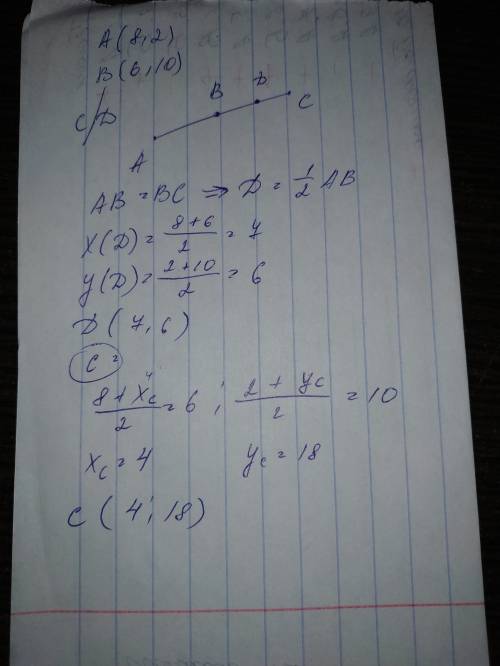 A(8,2)
B(6,10)
C/D
A B D C
AB = BC ⇒ D = 1/2 AB
x(D) = (8+6)/2 = 7
y(D) = (2+10)/2 = 6
D(7,6)
C =
(8+xc)/2 = 6 ; (2+yc)/2 = 10
xc = 4 yc = 18
C(4;18)